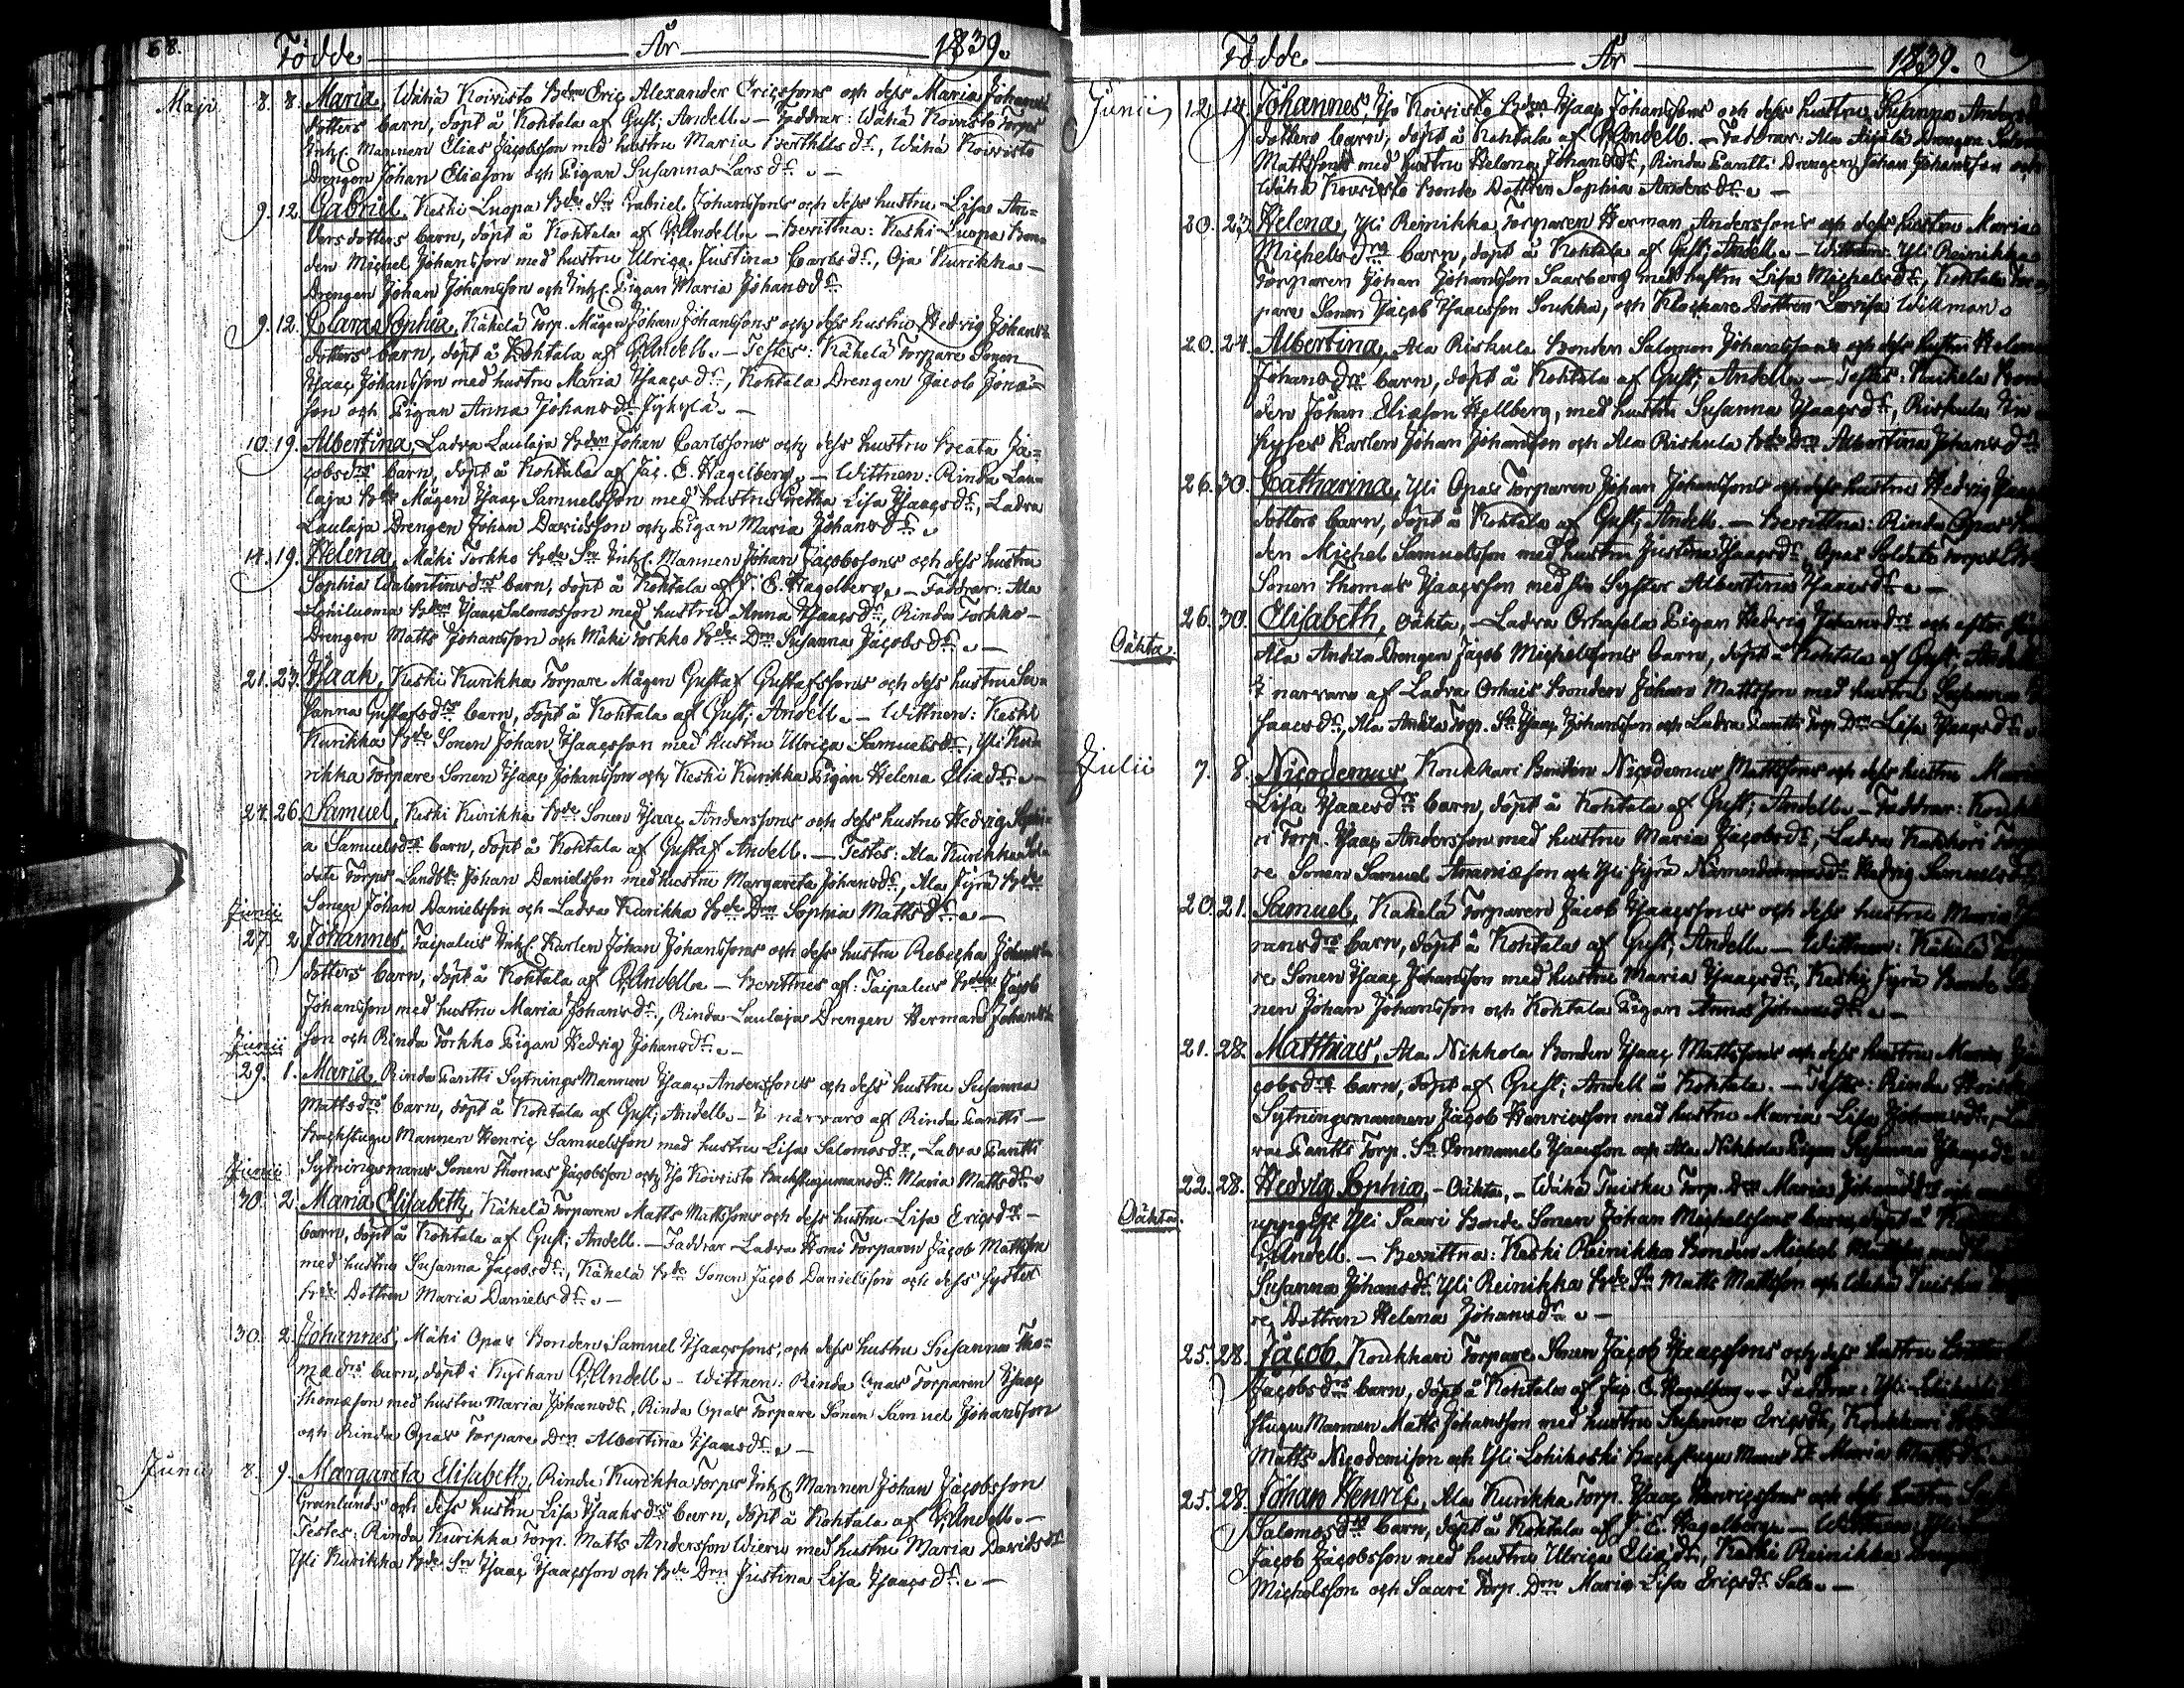 58. Födde År 1839.
Maji 8. 8. Maria, Wähä Koivisto Bden Eric Alexander Ericssons och dess Maria Johans
dotters barn, döpt å Kohtala af Gust: Andell. — Faddrar: Wähä Koivisto Torps
Inh. Mannen Elias Jacobsson med hustru Maria Berthils dr., Wähä Koivisto
Drengen Johan Eliason och Pigan Susanna Lars dr. —
9. 12. Gabriel, Keski Luopa Bde Sn Gabriel Johanssons och dess hustru Lisa An=
dersdotters barn, döpt å Kohtala af G: Andell. — Bevittna: Keski Luopa Bon
den Michel Johansson med hustru Ulrica Justina Carls dr., Oja Kurikka
Drengen Johan Johansson och Inh. Pigan Maria Johans dr.
9. 12. Clara Sophia, Käkelä Torp. Mågen Johan Johanssons och dess hustru Hedvig Johans
dotters barn, döpt å Kohtala af G: Andell. — Testes: Käkelä Torpare Sonen
Isaac Johansson med hustru Maria Isaacs dr., Kohtala Drengen Jacob Jona=
son och Pigan Anna Johans dr. Jyhylä. —
10. 19. Albertina, Ladva Laulaja Bden Johan Carlssons och dess hustru Beata Ja=
cobs drs barn, döpt å Kohtala af Jac. E. Hagelberg. — Wittnen: Rinda Lau
laja Bde Mågen Isaac Samuelsson med hustru Gretha Lisa Isaacs dr., Ladva
Laulaja Drengen Johan Davidsson och Pigan Maria Johans dr.
14. 19. Helena, Mäki Torkko Bde Sn Inh. Mannen Johan Jacobssons och dess hustru
Sophia Valentins drs barn, döpt å Kohtala af J. E. Hagelberg. — Faddrar: Ala
Bden Isaac Salomosson med hustru Anna Isaacs dr., Rinda Torkko
Drengen Matts Johansson och Mäki Torkko Bde Drn Susanna Jacobs dr. —
21. 23. Isaak, Keski Kurikka Torpare Mågen Gustaf Gustafssons och dess hustru Su
sanna Gustafs drs barn, döpt å Kohtala af Gust: Andell. — Wittnen: Keski
Kurikka Bde Sonen Johan Isaacsson med hustru Ulrica Samuels dr., Yli Ku
rikka Torpare Sonen Isaac Johansson och Keski Kurikka Pigan Helena Elia dr. —
24. 26. Samuel, Keski Kurikka Bde Sonen Isaac Anderssons och dess hustru Hedvig Sophi
a Samuels drs barn, döpt å Kohtala af Gustaf Andell. — Testes: Ala Kurikka Sol
date Torps Johan Danielsson med hustru Margareta Johans dr., Ala Jyrä Bde
Sonen Johan Danielsson och Ladva Kurikka Bde Drn Sophia Matts dr. —
Junii
27. 2. Johannes, Taipalus Inh. Karlen Johan Johanssons och dess hustru Rebecka Johans
dotters barn, döpt å Kohtala af G: Andell. — Bevittnes af: Taipalus Bden Jacob
Johansson med hustru Maria Johans dr., Rinda Laulaja Drengen Herman Johans
son och Rinda Torkko Pigan Hedvig Johans dr. —
Junii
29. 1. Maria, Rinda Pantti Sytnings Mannen Isaac Anderssons och dess hustru Susanna
Matts drs barn, döpt å Kohtala af Gust: Andell. — I närvaro af Rinda Pantti
Backstugu Mannen Henric Samuelsson med hustru Lisa Salomos dr., Ladva Pantti
Sytningsmans Sonen Thomas Jacobsson och Iso Koivisto Backstugumans dr. Maria Matts dr.
Junii
30. 2. Maria Elisabeth, Käkelä Torparen Matts Mattssons och dess hustru Lisa Erics drs
barn, döpt å Kohtala af Gust: Andell. — Faddrar Ladva Homi Torparen Jacob Mattson
med hustru Susanna Jacobs dr., Käkelä Bde Sonen Jacob Danielsson och dess syster
Bde Dottren Maria Daniels dr. —
30. 2. Johannes, Mäki Opas Bonden Samuel Isaacssons, och dess hustru Susanna Tho=
mæ drs barn, döpt i Kyrkan G: Andell. — Wittnen: Rinda Opas Torparen Isaac
Thomæson med hustru Maria Johans dr., Rinda Opas Torpare Sonen Samuel Johansson
och Rinda Opas Torpare Drn Albertina Isaacs dr. —
Junii 8. 9. Margareta Elisabeth, Rinda Kurikka Torps Inh. Mannen Johan Jacobsson
Grönlunds och dess hustru Lisa Isaaks drs barn, döpt å Kohtala af G: Andell. —
Testes: Rinda Kurikka Torp. Matts Andersson Wieru med hustru Maria Davids dr
Yli Kurikka Bde Sn Isaac Isaacsson och Bde Drn Justina Lisa Isaacs dr. —
Födde År 1839.
Junii 12. 14. Johannes, Iso Koivisto Bden Isaac Johanssons och dess hustru Susanna Anders
dotters barn, döpt å Kohtala af G: Andell. — Faddrar: Ala Drengen
Mattsson med hustru Helena Johans dr., Rinda Pantti Drengen Johan Johansson och
Wähä Koivisto Bonde Dottren Sophia Anders dr. —
20. 23. Helena, Yli Reinikka Torparen Herman Anderssons och dess hustru Maria
Michels drs barn, döpt å Kohtala af Gust: Andell. — Wittnen: Yli Reinikka
Torparen Johan Johansson Saarberg med hustru Lisa Michels dr., Kohtala Tor
pare Sonen Jacob Isaacsson Soukka, och Klockare Dottren Lovisa Wilkman.
20. 24. Albertina, Ala Riskula Bonden Salomon Johanssons och dess hustru Helena
Johans drs barn, döpt å Kohtala af Gust: Andell. — Testes: Bon
den Johan Eliason Hellberg, med hustru Susanna Isaacs dr., Riskula In
hyses Karlen Johan Johansson och Ala Riskula Bde Drn Albertina Johans dr.
26. 30. Catharina, Yli Opas Torparen Johan Johanssons och dess hustru Hedvig Isaacs
dotters barn, döpt å Kohtala af Gust: Andell. — Bevittna: Rinda Opas Bon
den Michel Samuelsson med hustru Justina Isaacs dr., Opas Soldate Torps
Sonen Thomas Isaacsson med sin Syster Albertina Isaacs dr. —
Oäkta. 26. 30. Elisabeth, Oäkta, — Ladva Orhasela Pigan Hedvig Johans drs och efter
Ala Andila Drengen Jacob Michelssons barn, döpt å Kohtala af Gust: Andell
I närvaro af Ladva Bonden Johan Mattsson med hustru Susanna I
saacs dr., Ala Andila Torp. Sn Isaac Johansson och Ladva Pantti Torp Drn Lisa Isaacs dr.
Julii 7. 8. Nicodemus, Koukkari Bonden Nicodemus Mattssons och dess hustru Maria
Lisa Isaacs drs barn, döpt å Kohtala af Gust: Andell. — Faddrar: Koukka
ri Torp. Isaac Andersson med hustru Maria Jacobs dr., Ladva Torpa
re Sonen Samuel Ananiæson och Yli Jyrä Nämndemans dr. Hedvig Samuels dr
20. 21. Samuel, Käkelä Torparen Jacob Isaacssons och dess hustru Maria
drs barn, döpt å Kohtala af Gust: Andell. — Wittnen: Käkelä Torpa
re Sonen Isaac Johansson med hustru Maria Isaacs dr., Keski Jyrä Bonde So
nen Johan Johansson och Kohtala Pigan Anna Johans dr. —
21. 28. Matthias, Ala Nikkola Bonden Isaac Mattssons och dess hustru Maria Ja
cobs drs barn, döpt af Gust: Andell å Kohtala. — Testes: Rinda
Sytningsmannen Jacob Henricsson med hustru Maria Lisa Johans dr., Lad
va Pantti Torp. Sn Emmanuel Isaacsson och Ala Nikkola Pigan Susanna Isaacs dr.
Oäkta. 22. 28. Hedvig Sophia, — Oäkta, — Wähä Tuisku Torp. Drn Maria Johans drs och
uppgift Yli Saari Bonde Sonen Johan Michelssons barn, döpt å Kohtala
G: Andell. — Bevittna: Keski Reinikka Bonden Michel Mattsson med hustru
Susanna Johans dr. Yli Reinikka Bde Sn Matts Mattsson och Wähä Tuisku
re Dottren Helena Johans dr. —
25. 28. Jacob, Koukkari Torpare Sonen Jacob Isaacssons och dess hustru
Jacobs drs barn, döpt å Kohtala af Jac. E. Hagelberg. — Faddrar: Yli
stugu Mannen Matts Johansson med hustru Susanna Erics dr., Koukkari
Matts Nicodemison och Yli Lohikoski Backstugu Mans Dr. Maria Matts dr.
25. 28. Johan Henric, Ala Kurikka Torp. Isaac Henricssons och dess hustru
Salomos drs barn, döpt å Kohtala af J. E. Hagelberg. — Wittnen: Yli
Jacob Jacobsson med hustru Ulrica Eliæ dr., Keski Reinikka Drengen
Michelsson och Saari Torp. Drn Maria Lisa Erics dr. —